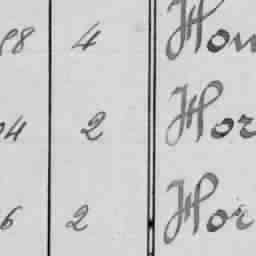 98 4 Hon
04 2 Hor
6 2 Hor